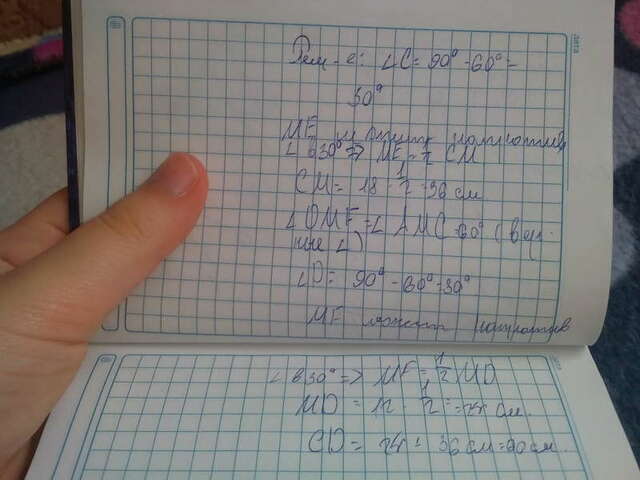 Реш-е: ∠C = 90° - 60° =
30°
ME лежит напротив
∠ в 30° => ME = 1/2 CM
CM = 18 : 1/2 = 36 см
∠DMF = ∠AMC = 60° (вер-
ные ∠)
∠D = 90° - 60° = 30°
MF лежит напротив
∠ в 30° => MF = 1/2 MD
MD = 12 : 1/2 = 24 см.
CD = 24 + 36 см = 60 см.